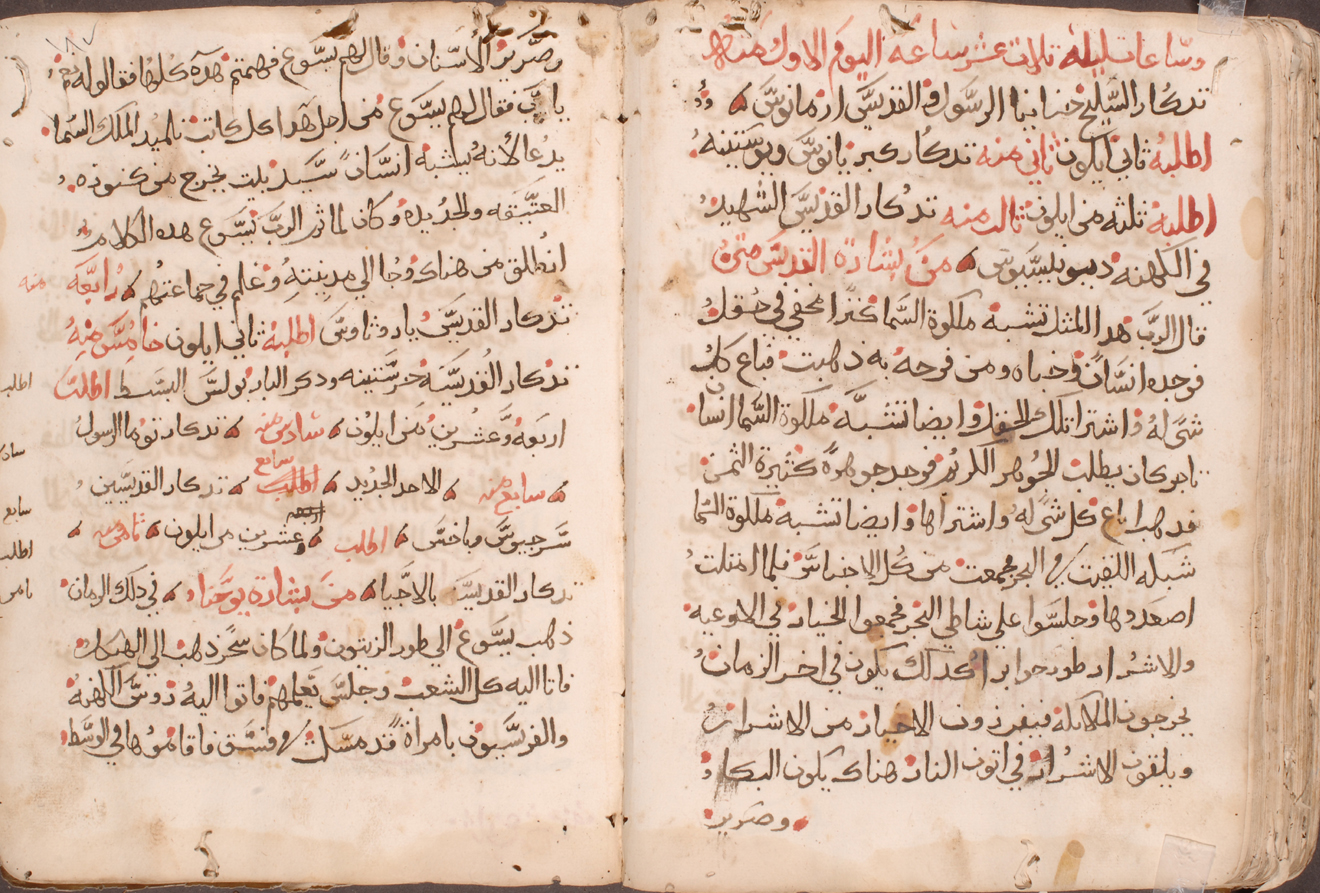 وساعات ليله تلات عشر ساعه اليوم الاول منه
تدكار السليح حنانيا الرسول و القديس ارمانوس
اطلبه تاني ايلون تاني منه تدكار كبريانوس ويوستينه
اطلبه تلته من ايلون تالت منه تدكار القديس الشهيد
في الكهنه ديونيسيوس من بشارة القديس متى
قال الرب هدا المثل تشبه ملكوة السما كنزا مخفي في حقل
فوجده انسان وخباه ومن فرحه به دهب فباع كل
شي له واشترا تلك الحقل وايضا تشبه ملكوة السما انسان
تاجر كان يطلب الجوهر الكريم فوجد جوهرة كتيرة التمن
فدهب باع كل شي له واشتراها وايضا تشبه ملكوة السما
شبكه القيت في البحر فجمعت من كل الاجناس فلما امتلت
اصعدوها وجلسوا على شاطي البحر فجمعوا الخيار في الاوعيه
والاشرار طرحوا برا كدلك يكون في اخر الزمان
يخرجون الملايكه فيفردون الاخيار من الاشرار
ويلقون الاشرار في اتون النار هناك يكون البكا
وصرير
١٨٧
وصرير الاسنان وقال لهم يسوع فهمتم هده كلها فقالوا له نعم
يا رب فقال لهم يسوع من اجل هدا كل كاتب تلميد الملك السما
يدعا لانه يشبه انسان سيد بيت يخرج من كنوزه
العتيقه والجديده وكان لما تم الرب يسوع هده الكلام
انطلق من هناك وجا الي مدينته وعلم في جماعتهم رابعه منه
تدكار القديس ياروتاوس اطلبه تاني ايلون خامس منه
تدكار القديسه خرستينه ودكر البار بولس البسط اطلب
اربعه وعشرين من ايلون سادس منه تدكار توما الرسول
سابع منه الاحد الجديد اطلب سابع تدكار القديسين
سرجيوس وباخس اطلب وعشرين من ايلون تامن منه
تدكار القديسه بالاجيا من بشارة يوحنا في دلك الزمان
دهب يسوع الى طور الزيتون ولما كان سحر دهب الي الهيكل
فاتا اليه كل الشعب وجلس يعلمهم فاتوا اليه روس الكهنه
والفريسيون بامراة قد مسكت في فسق فاقاموها في الوسط
اطلب
سابع
اطلب
تامن